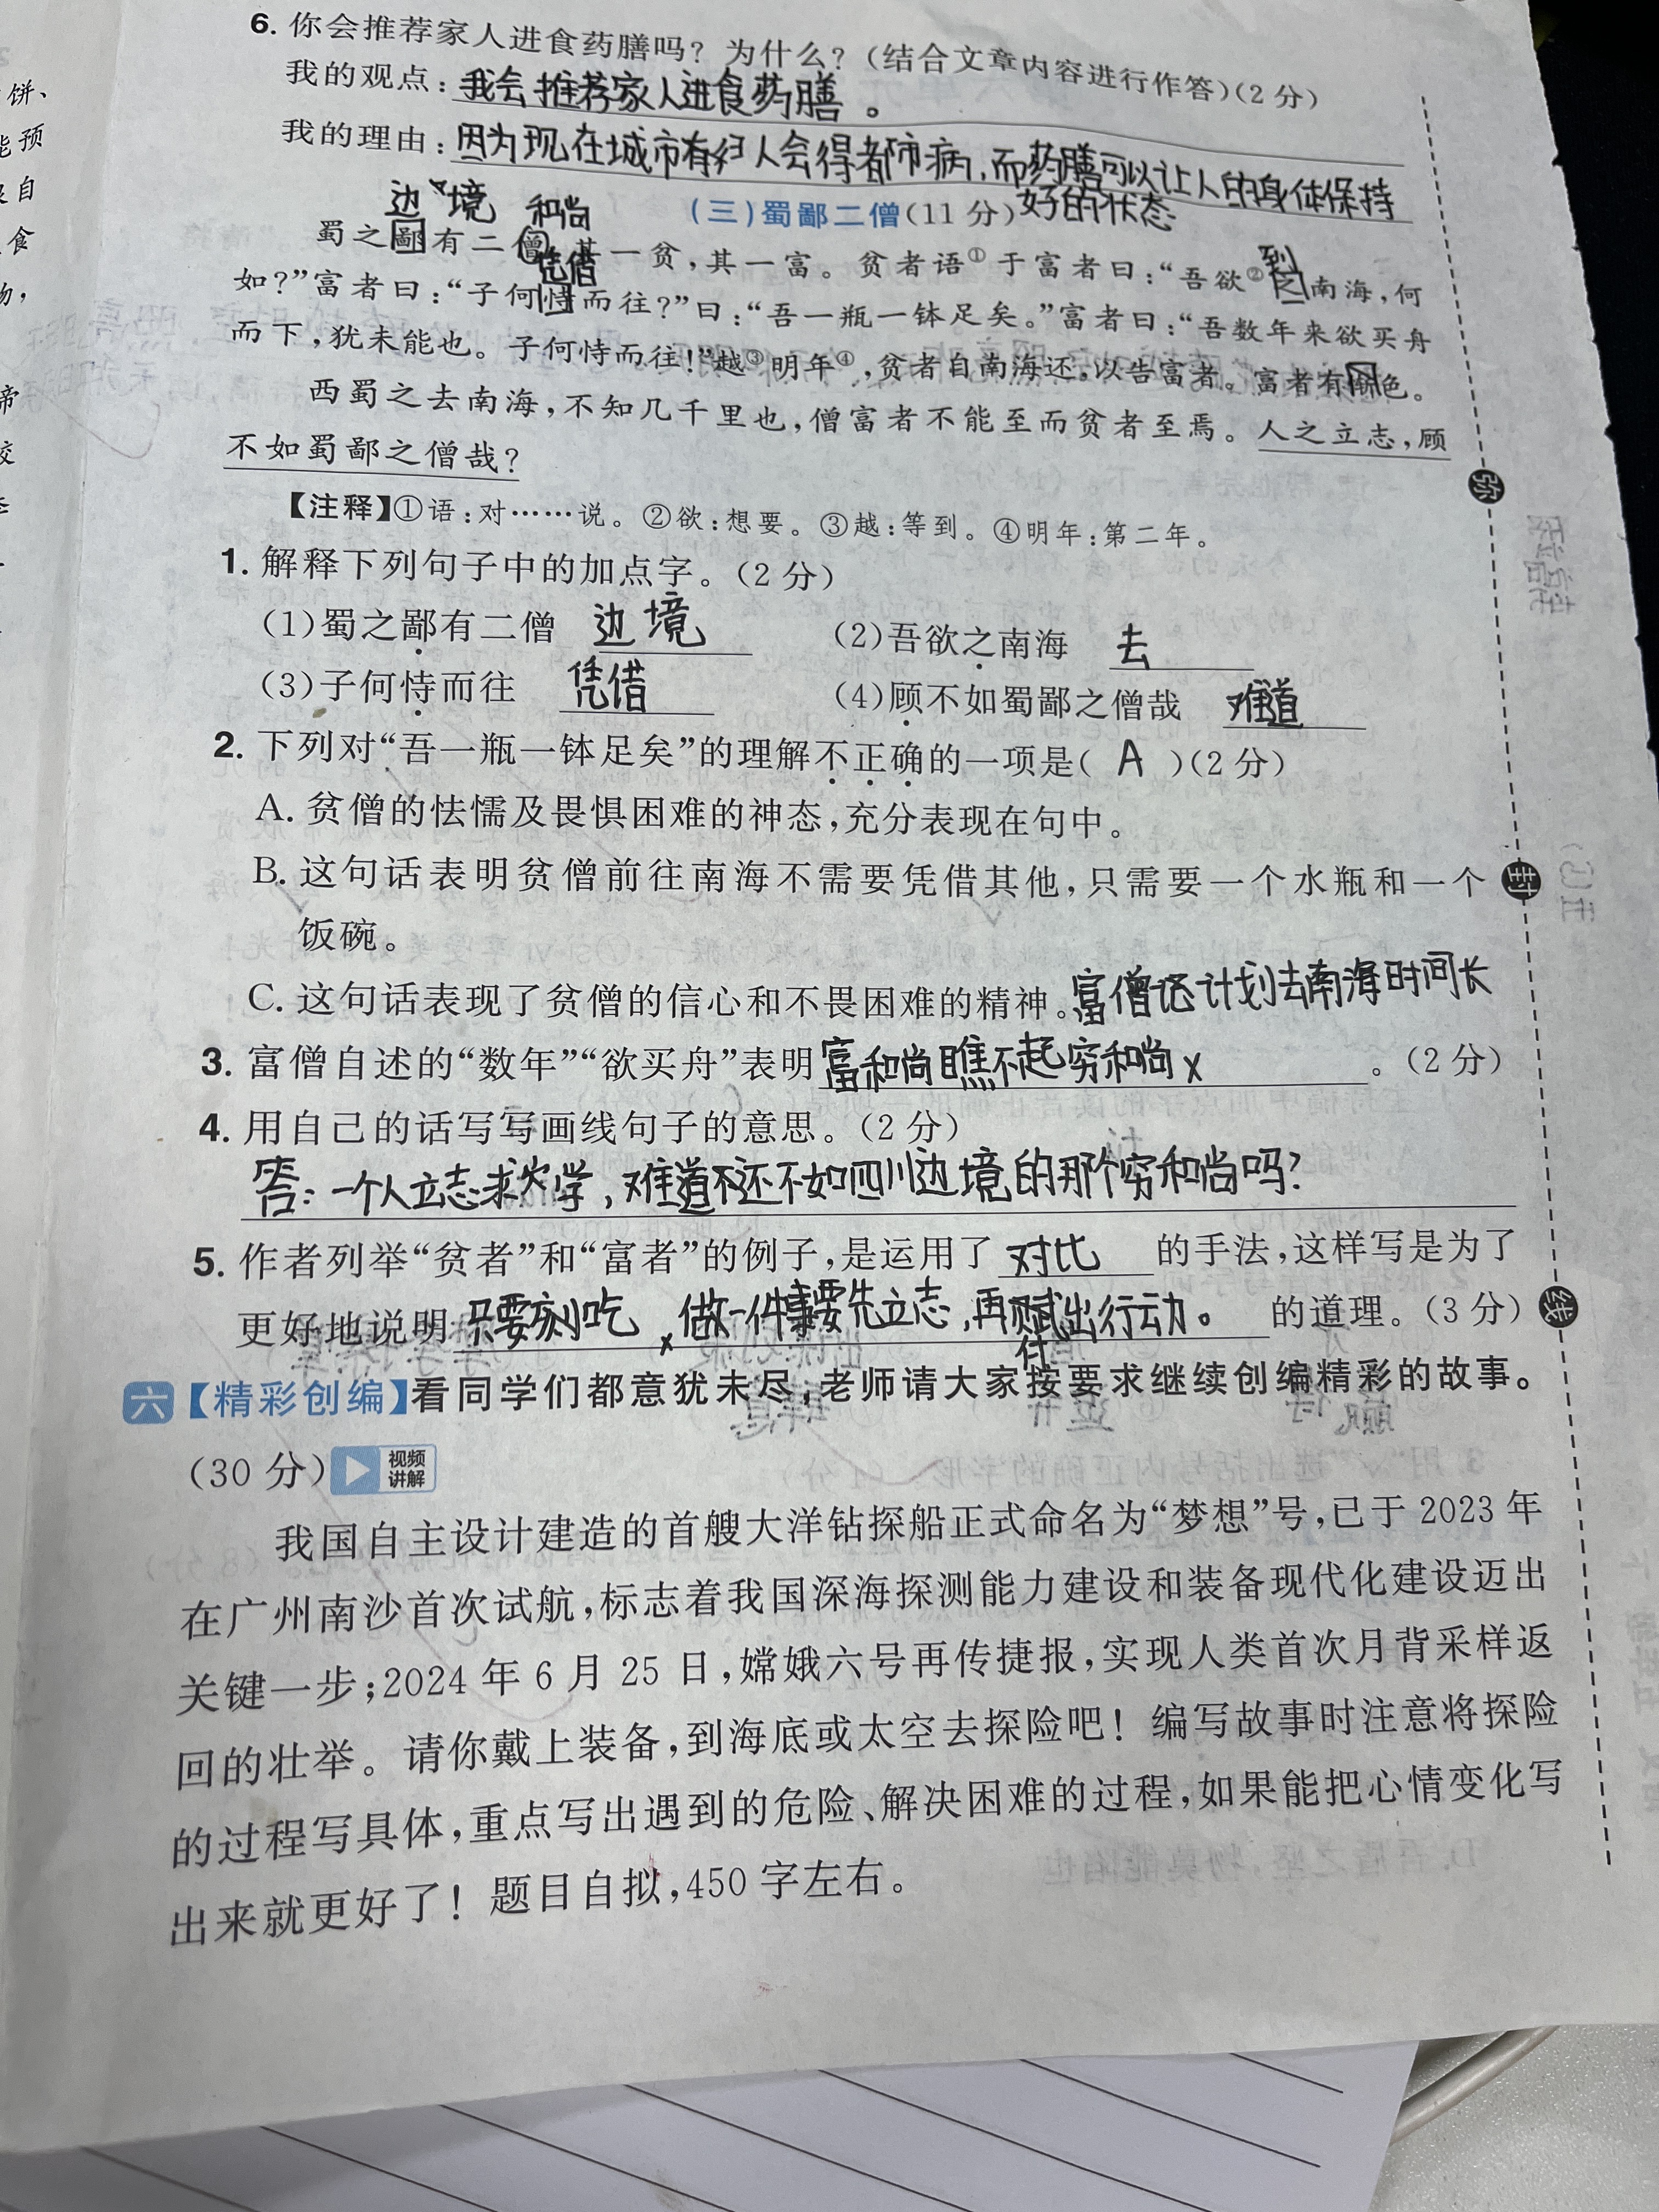 6. 你会推荐家人进食药膳吗？为什么？(结合文章内容进行作答)(2分)
我的观点：我会推荐家人进食药膳。
我的理由：因为现在城市有
人会得都市病，而药膳可以让人的身体保持
好的状态
(三)蜀鄙二僧(11分)
边境 和尚
蜀之鄙有二僧，其一贫，其一富。贫者语①于富者曰：“吾欲②之南海，何
凭借 到
如？”富者曰：“子何恃而往？”曰：“吾一瓶一钵足矣。”富者曰：“吾数年来欲买舟
而下，犹未能也。子何恃而往！”越③明年④，贫者自南海还，以告富者。富者有惭色。
西蜀之去南海，不知几千里也，僧富者不能至而贫者至焉。人之立志，顾
不如蜀鄙之僧哉？
【注释】①语：对……说。②欲：想要。③越：等到。④明年：第二年。
1. 解释下列句子中的加点字。(2分)
(1)蜀之鄙有二僧 边境 (2)吾欲之南海 去
(3)子何恃而往 凭借 (4)顾不如蜀鄙之僧哉 难道
2. 下列对“吾一瓶一钵足矣”的理解不正确的一项是( A )(2分)
A. 贫僧的怯懦及畏惧困难的神态，充分表现在句中。
B. 这句话表明贫僧前往南海不需要凭借其他，只需要一个水瓶和一个
饭碗。
C. 这句话表现了贫僧的信心和不畏困难的精神。
富僧 计划去南海时间长
3. 富僧自述的“数年”“欲买舟”表明富和尚瞧不起穷和尚 x 。(2分)
4. 用自己的话写写画线句子的意思。(2分)
答：一个人立志求学，难道 还不如四川边境的那个穷和尚吗？
5. 作者列举“贫者”和“富者”的例子，是运用了 对比 的手法，这样写是为了
更好地说明只要刻吃 x 做一件事要先立志，再赋出行动。的道理。(3分)
付
六【精彩创编】看同学们都意犹未尽，老师请大家按要求继续创编精彩的故事。
(30分) 视频
讲解
我国自主设计建造的首艘大洋钻探船正式命名为“梦想”号，已于2023年
在广州南沙首次试航，标志着我国深海探测能力建设和装备现代化建设迈出
关键一步；2024年6月25日，嫦娥六号再传捷报，实现人类首次月背采样返
回的壮举。请你戴上装备，到海底或太空去探险吧！编写故事时注意将探险
的过程写具体，重点写出遇到的危险、解决困难的过程，如果能把心情变化写
出来就更好了！题目自拟，450字左右。
弥
封
线
饼、
能预
食
物，